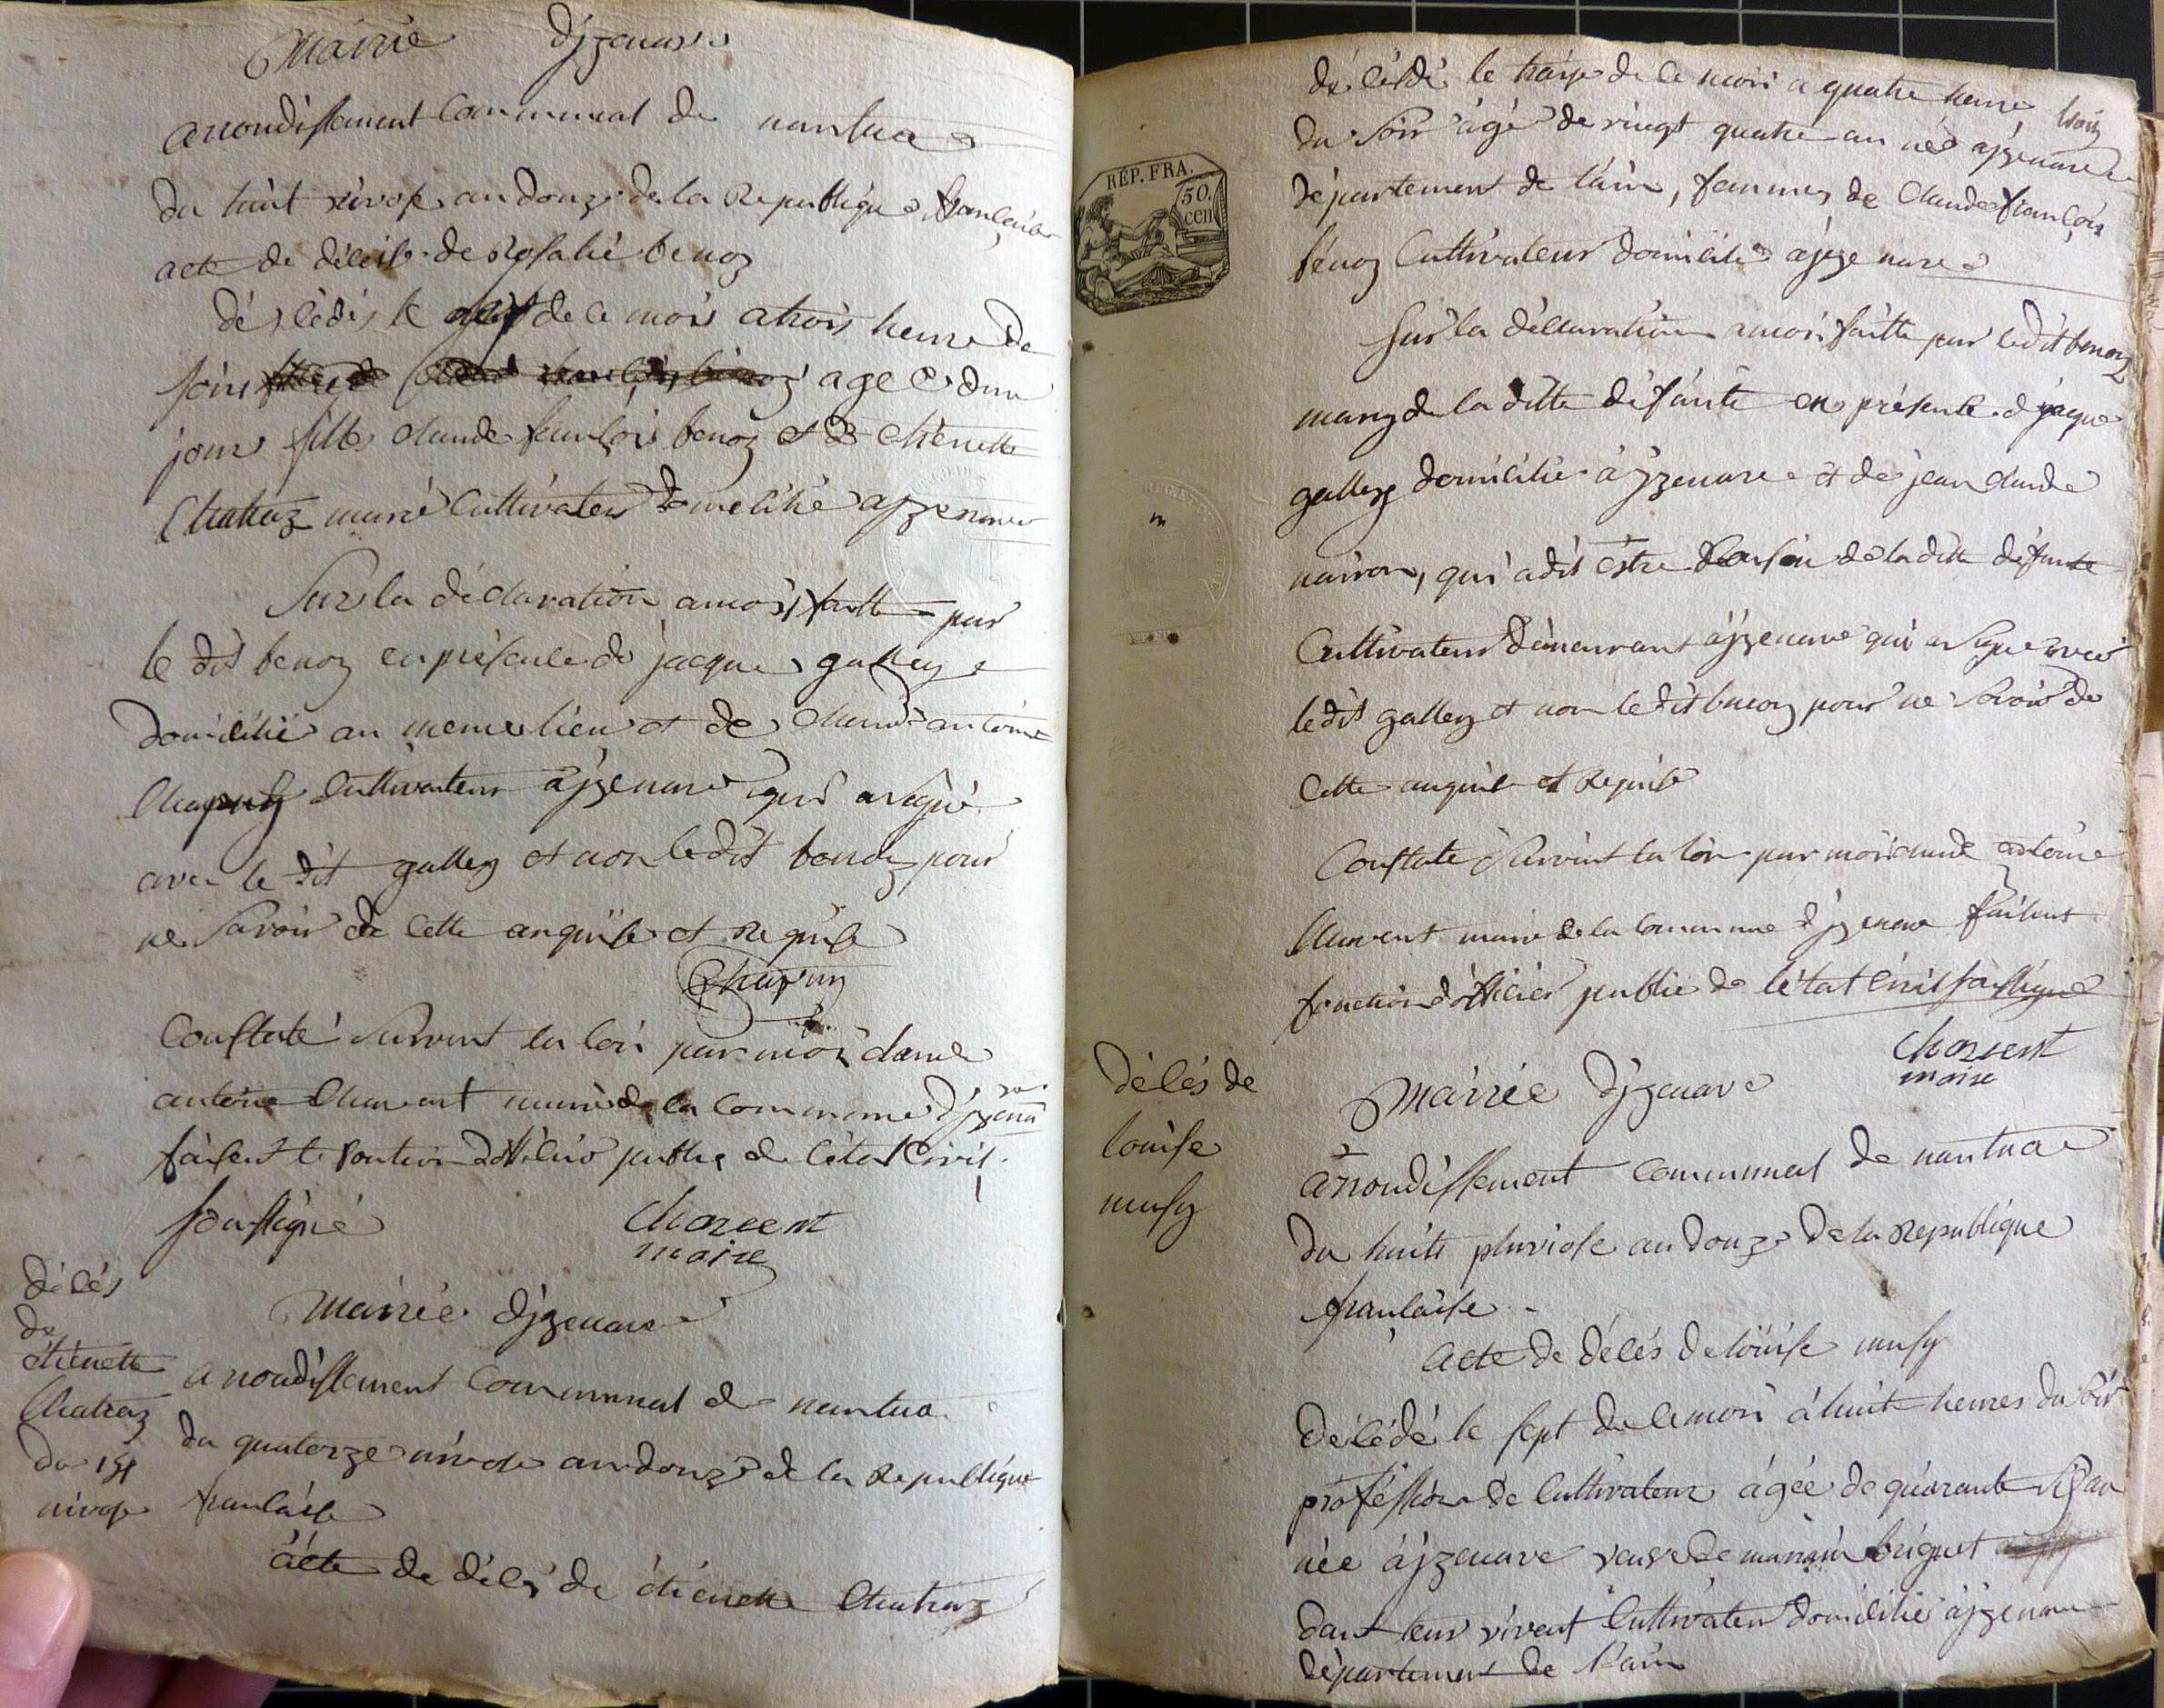 Mairie d'jzenave
arrondissement Communal de nantua
du huit nivose an douze de la Republique francaise
acte de décés de Rosalie benoz
décédés le de ce mois a trois heure de
soire agée dun
jour fille claude francois benoz et de etienette
Chatraz marié Cultivateur domicilié ajzenave
Sur la déclaration a moi faitte par
le dit benoz en présence de jacque galley
domicilié au meme lieu et de claude antoine
Chapuy Cultivateur ajzenave qui a signé
avec le dit galley et non le dit benoz pour
ne savoir de cette anquise et requise
Chapuy
Constaté suivant la loi par moi claude
antoine Charvent maire de la commune d'jzenave
faisent le fonction d'officier public de l'état Civil
sousigné
Charvent
maire
décés
de
étienette
Chatraz
du 14
nivose
Mairie d'jzenave
arrondissement Communal de nantua
du quatorze nivose an douze de la Republique
francaise
acte de décés de étienette Chatraz
REP. FRA.
50.
cen
décédé le traize de ce mois a quatre heure
du soir agé de vingt quatre an née ajzenave
département de l'ain, femme de Claude francois
benoz Cultivateur domicilié ajzenave
Sur la déclaration a moi faitte par le dit benoz
mary de la ditte défunte en présence de jacque
galley domicilié a jzenave et de jean claude
nairon, qui a dit éstre de la ditte défunte
Cultivateur demeurant ajzenave qui a signé avec
le dit galley et non le dit benoz pour ne savoir de
cette anquise et requise
Constaté suivant la loi par moi claude antoine
Charvent maire de la commune d'jzenave faisent
fonction d'officier public de l'état Civil sousigné
Charvent
maire
décés de
louise
musy
Mairie d'jzenave
arrondissement communal de nantua
du huit pluviose an douze de la Republique
francaise
acte de décés de louise musy
décédé le sept de ce moi à huit heures du soir
proféssion de Cultivateur agée de quarante six an
née ajzenave veuve de briguet
dant leur vivent Cultivateur domicilié ajzenave
département de l'ain